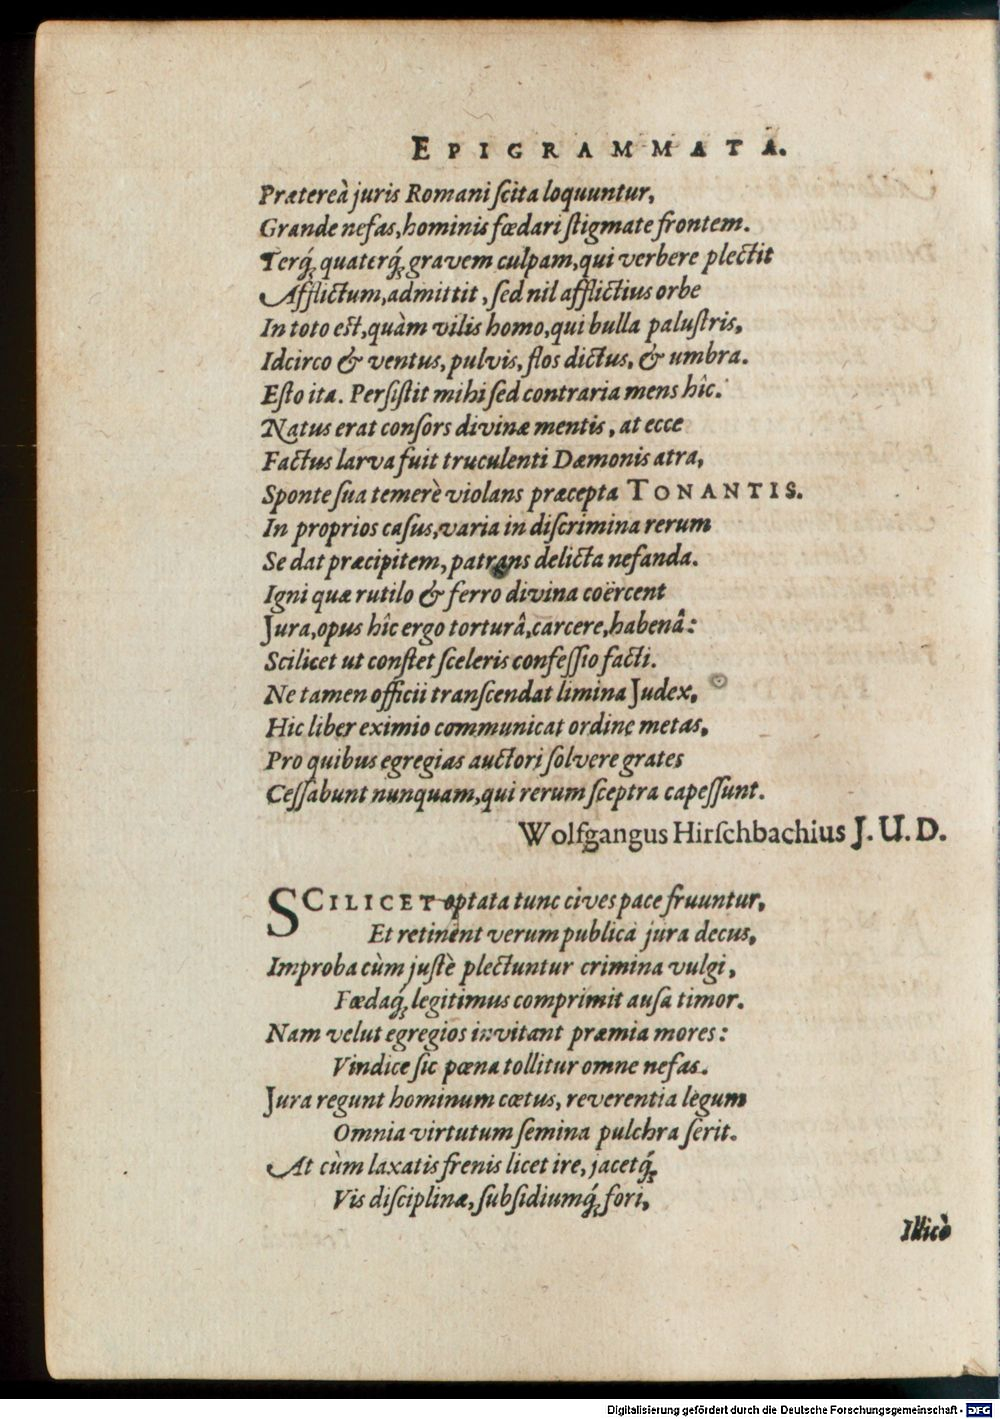 EPIGRAMMATA.
Prætereà juris Romani ſcita loquuntur,
Grande nefas, hominis fœdari ſtigmate frontem.
Terq́; quaterq́; gravem culpam, qui verbere plectit
Afflictum, admittit, ſed nil afflictius orbe
In toto eſt, quàm vilis homo, qui bulla paluſtris,
Idcirco & ventus, pulvis, flos dictus, & umbra.
Eſto ita. Perſiſtit mihi ſed contraria mens hîc.
Natus erat conſors divinæ mentis, at ecce
Factus larva fuit truculenti Dæmonis atra,
Sponte ſua temerè violans præcepta TONANTIS.
In proprios caſus, varia in diſcrimina rerum
Se dat præcipitem, patrans delicta nefanda.
Igni quæ rutilo & ferro divina coërcent
Jura, opus hîc ergo torturâ, carcere, habenâ:
Scilicet ut conſtet ſceleris confeſſio facti.
Ne tamen officii tranſcendat limina Judex,
Hic liber eximio communicat ordine metas,
Pro quibus egregias auctori ſolvere grates
Ceſſabunt nunquam, qui rerum ſceptra capeſſunt.
Wolfgangus Hirſchbachius J. U. D.
SCILICET optata tunc cives pace fruuntur,
Et retinent verum publica jura decus,
Improba cùm juſtè plectuntur crimina vulgi,
Fœdaq́; legitimus comprimit auſa timor.
Nam velut egregios invitant præmia mores:
Vindice ſic pœna tollitur omne nefas.
Jura regunt hominum cœtus, reverentia legum
Omnia virtutum ſemina pulchra ſerit.
At cùm laxatis frenis licet ire, jacetq́;
Vis diſciplinæ, ſubſidiumq́; fori,
Illicò
Digitalisierung gefördert durch die Deutsche Forschungsgemeinschaft - DFG